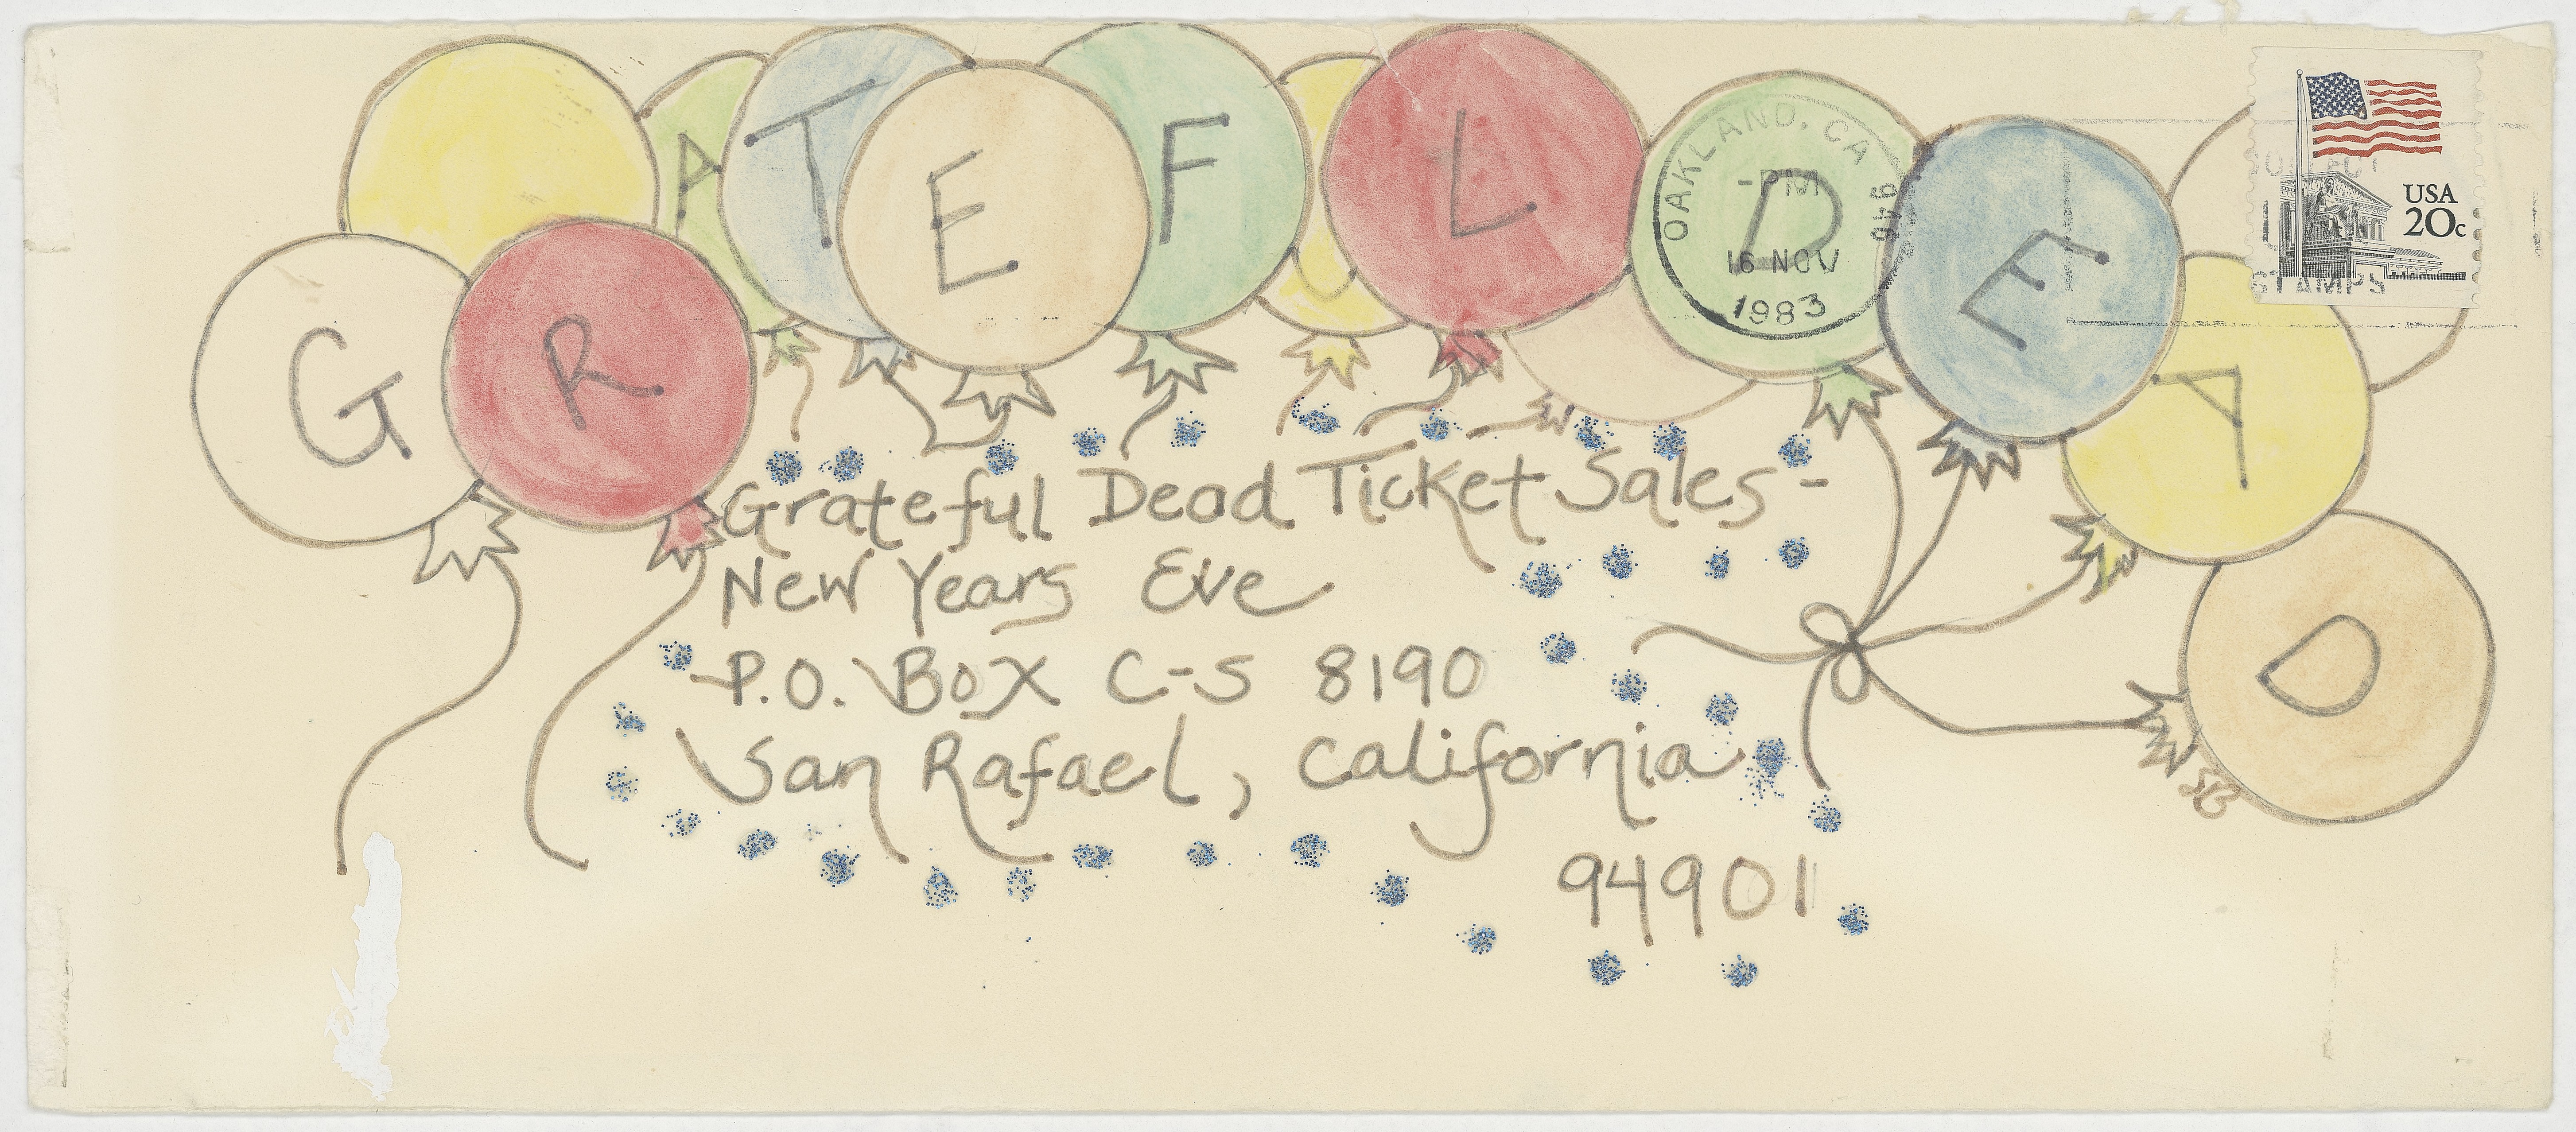 GRATEFUL DEAD
OAKLAND, CA
946
-PM
16 NOV
1983
USA
20c
STAMPS
Grateful Dead Ticket Sales-
New Years Eve
P.O. Box C-S 8190
San Rafael, California
94901
SB